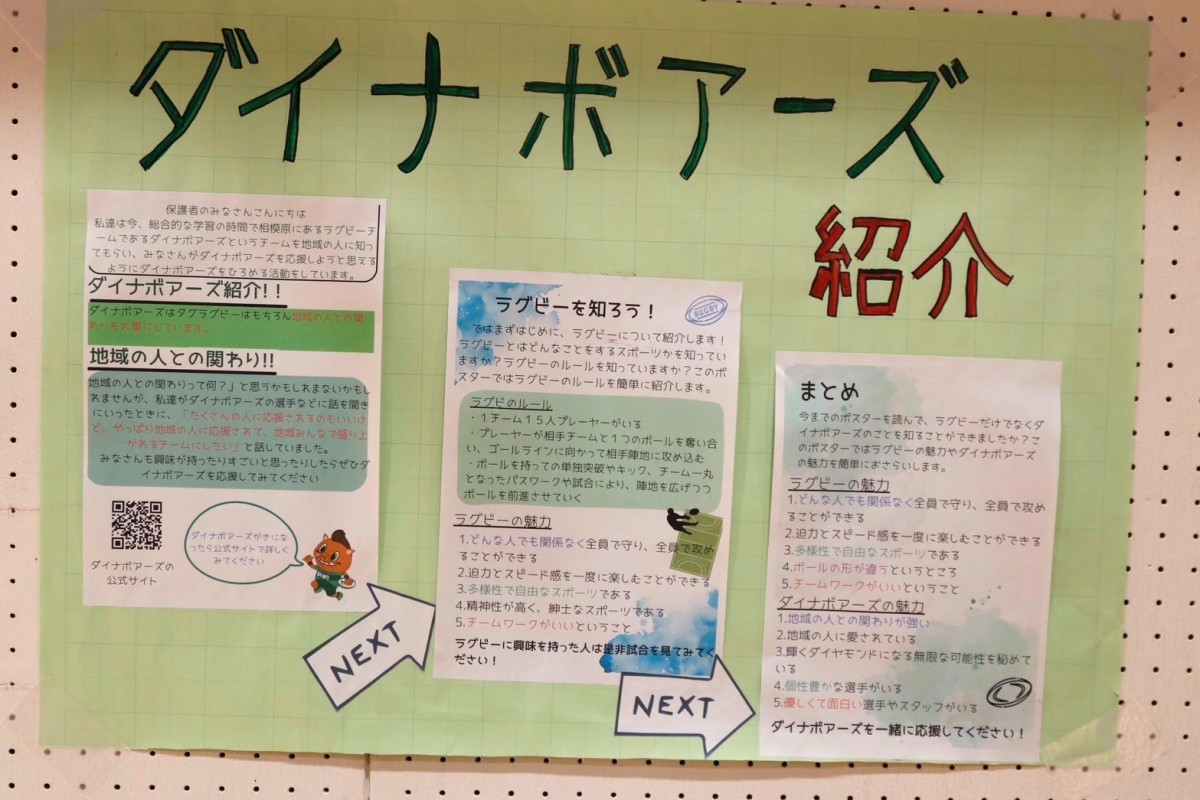 ダイナボアーズ
紹介
保護者のみなさんこんにちは
私達は今、総合的な学習の時間で相模原にあるラグビーチ
ームであるダイナボアーズというチームを地域の人に知っ
てもらい、みなさんがダイナボアーズを応援しようと思える
ようにダイナボアーズをひろめる活動をしています。
ダイナボアーズ紹介!!
ダイナボアーズはタグラグビーはもちろん地域の人との関
わりも大事にしています。
地域の人との関わり!!
地域の人との関わりって何?」と思うかもしれまないかもし
れませんが、私達がダイナボアーズの選手などに話を聞き
にいったときに、「たくさんの人に応援されるのもいいけ
ど、やっぱり地域の人に応援されて、地域みんなで盛り上
がれるチームにしたい」と話していました。
みなさんも興味が持ったりすごいと思ったりしたらぜひダ
イナボアーズを応援してみてください
ダイナボアーズがきにな
ったら公式サイトで詳しく
みてください
ダイナボアーズの
公式サイト
NEXT
ラグビーを知ろう!
RUGBY
ではまずはじめに、ラグビーについて紹介します!
ラグビーとはどんなことをするスポーツかを知ってい
ますか?ラグビーのルールを知っていますか?このポ
スターではラグビーのルールを簡単に紹介します。
ラグビのルール
・1チーム15人プレーヤーがいる
・プレーヤーが相手チームと1つのボールを奪い合
い、ゴールラインに向かって相手陣地に攻め込む
・ボールを持っての単独突破やキック、チーム一丸
となったパスワークや試合により、陣地を広げつつ
ボールを前進させていく
ラグビーの魅力
1.どんな人でも関係なく全員で守り、全員で攻め
ることができる
2.迫力とスピード感を一度に楽しむことができる
3.多様性で自由なスポーツである
4.精神性が高く、紳士なスポーツである
5.チームワークがいいということ
ラグビーに興味を持った人は是非試合を見てみてく
ださい!
NEXT
まとめ
今までのポスターを読んで、ラグビーだけでなくダ
イナボアーズのことを知ることができましたか?こ
のポスターではラグビーの魅力やダイナボアーズ
の魅力を簡単におさらいします。
ラグビーの魅力
1.どんな人でも関係なく全員で守り、全員で攻め
ることができる
2.迫力とスピード感を一度に楽しむことができる
3.多様性で自由なスポーツである
4.ボールの形が違うというところ
5.チームワークがいいということ
ダイナボアーズの魅力
1.地域の人との関わりが強い
2.地域の人に愛されている
3.輝くダイヤモンドになる無限な可能性を秘めて
いる
4.個性豊かな選手がいる
5.優しくて面白い選手やスタッフがいる
ダイナボアーズを一緒に応援してください!